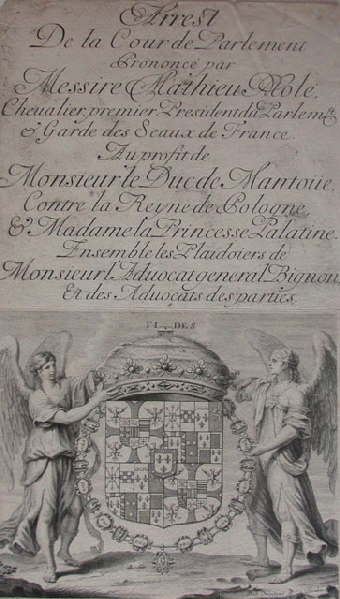 Arrest
De la Cour de Parlement
Prononcé par
Messire Mathieu Molé,
Chevalier, premier President du Parlem.t
& Garde des Seaux de France.
Au profit de
Monsieur le Duc de Mantoüe,
Contre la Reyne de Pologne,
& Madame la Princesse Palatine.
Ensemble les Plaidoiers de
Monsieur l'Aduocat general Bignon,
Et des Aduocats des parties.
FI DES